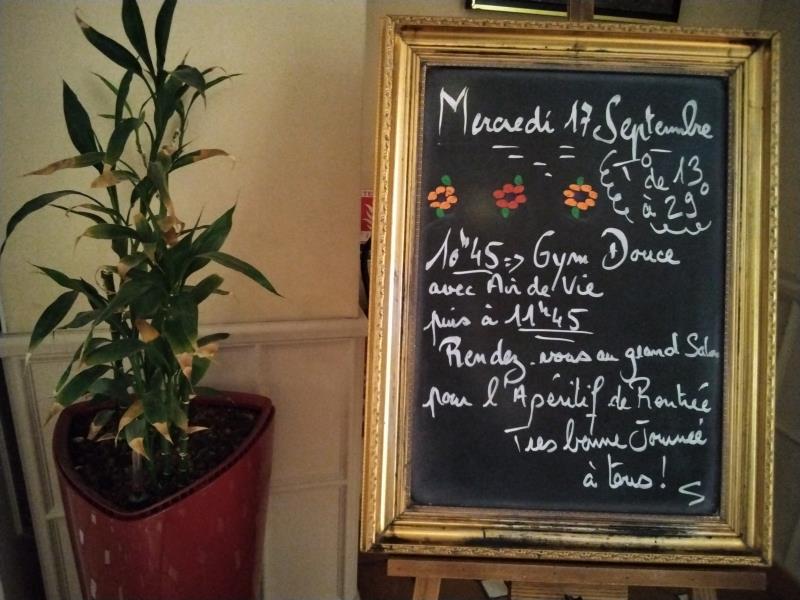 Mercredi 17 Septembre
T° de 13°
à 29°
10h45 => Gym Douce
avec Air de Vie
puis à 11h45
Rendez-vous au grand Salon
pour l'Apéritif de Rentrée
Très bonne Journée
à tous !